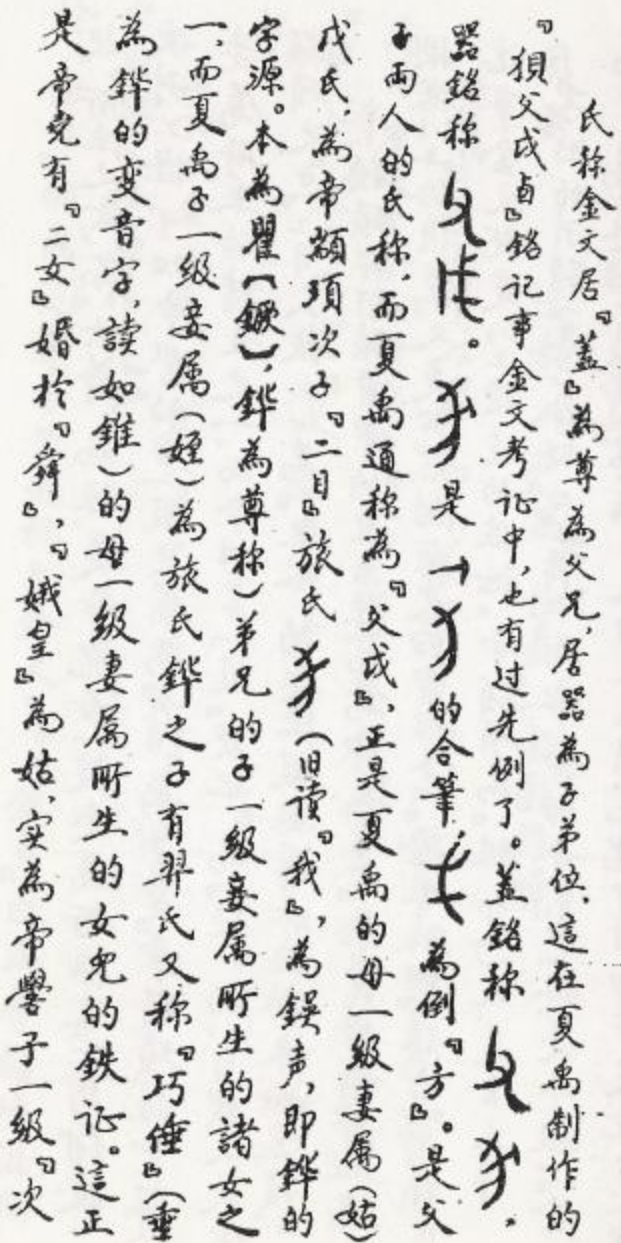 氏称金文居『蓋』為尊為父兄，居器為子弟位，這在夏禹制作的
『狽父戉卣』銘记事金文考证中，也有过先例了。蓋銘称
器銘称。是的合筆，為倒『方』。是父
子两人的氏称，而夏禹通称為『父戉』，正是夏禹的母一級妻属（姑）
戉氏，為帝顓頊次子『二目』旅氏（旧读『我』，為錤声，即鏵的
字源。本為瞿【鐝】，鏵為尊称）弟兄的子一級妾属所生的諸女之
一，而夏禹子一級妾属（姪）為旅氏鏵之子有羿氏又称『巧倕』（垂
為鏵的变音字，讀如錐）的母一級妻属所生的女兒的鉄证。這正
是帝堯有『二女』婚於『舜』，『娥皇』為姑，实為帝嚳子一級『次